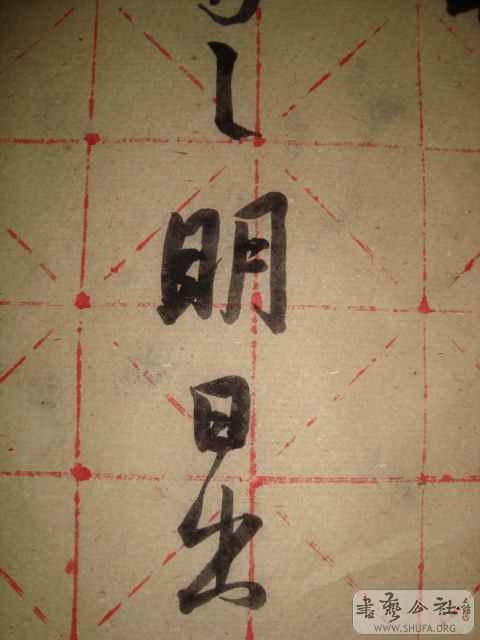 明日出
書藝公社
WWW.SHUFA.ORG